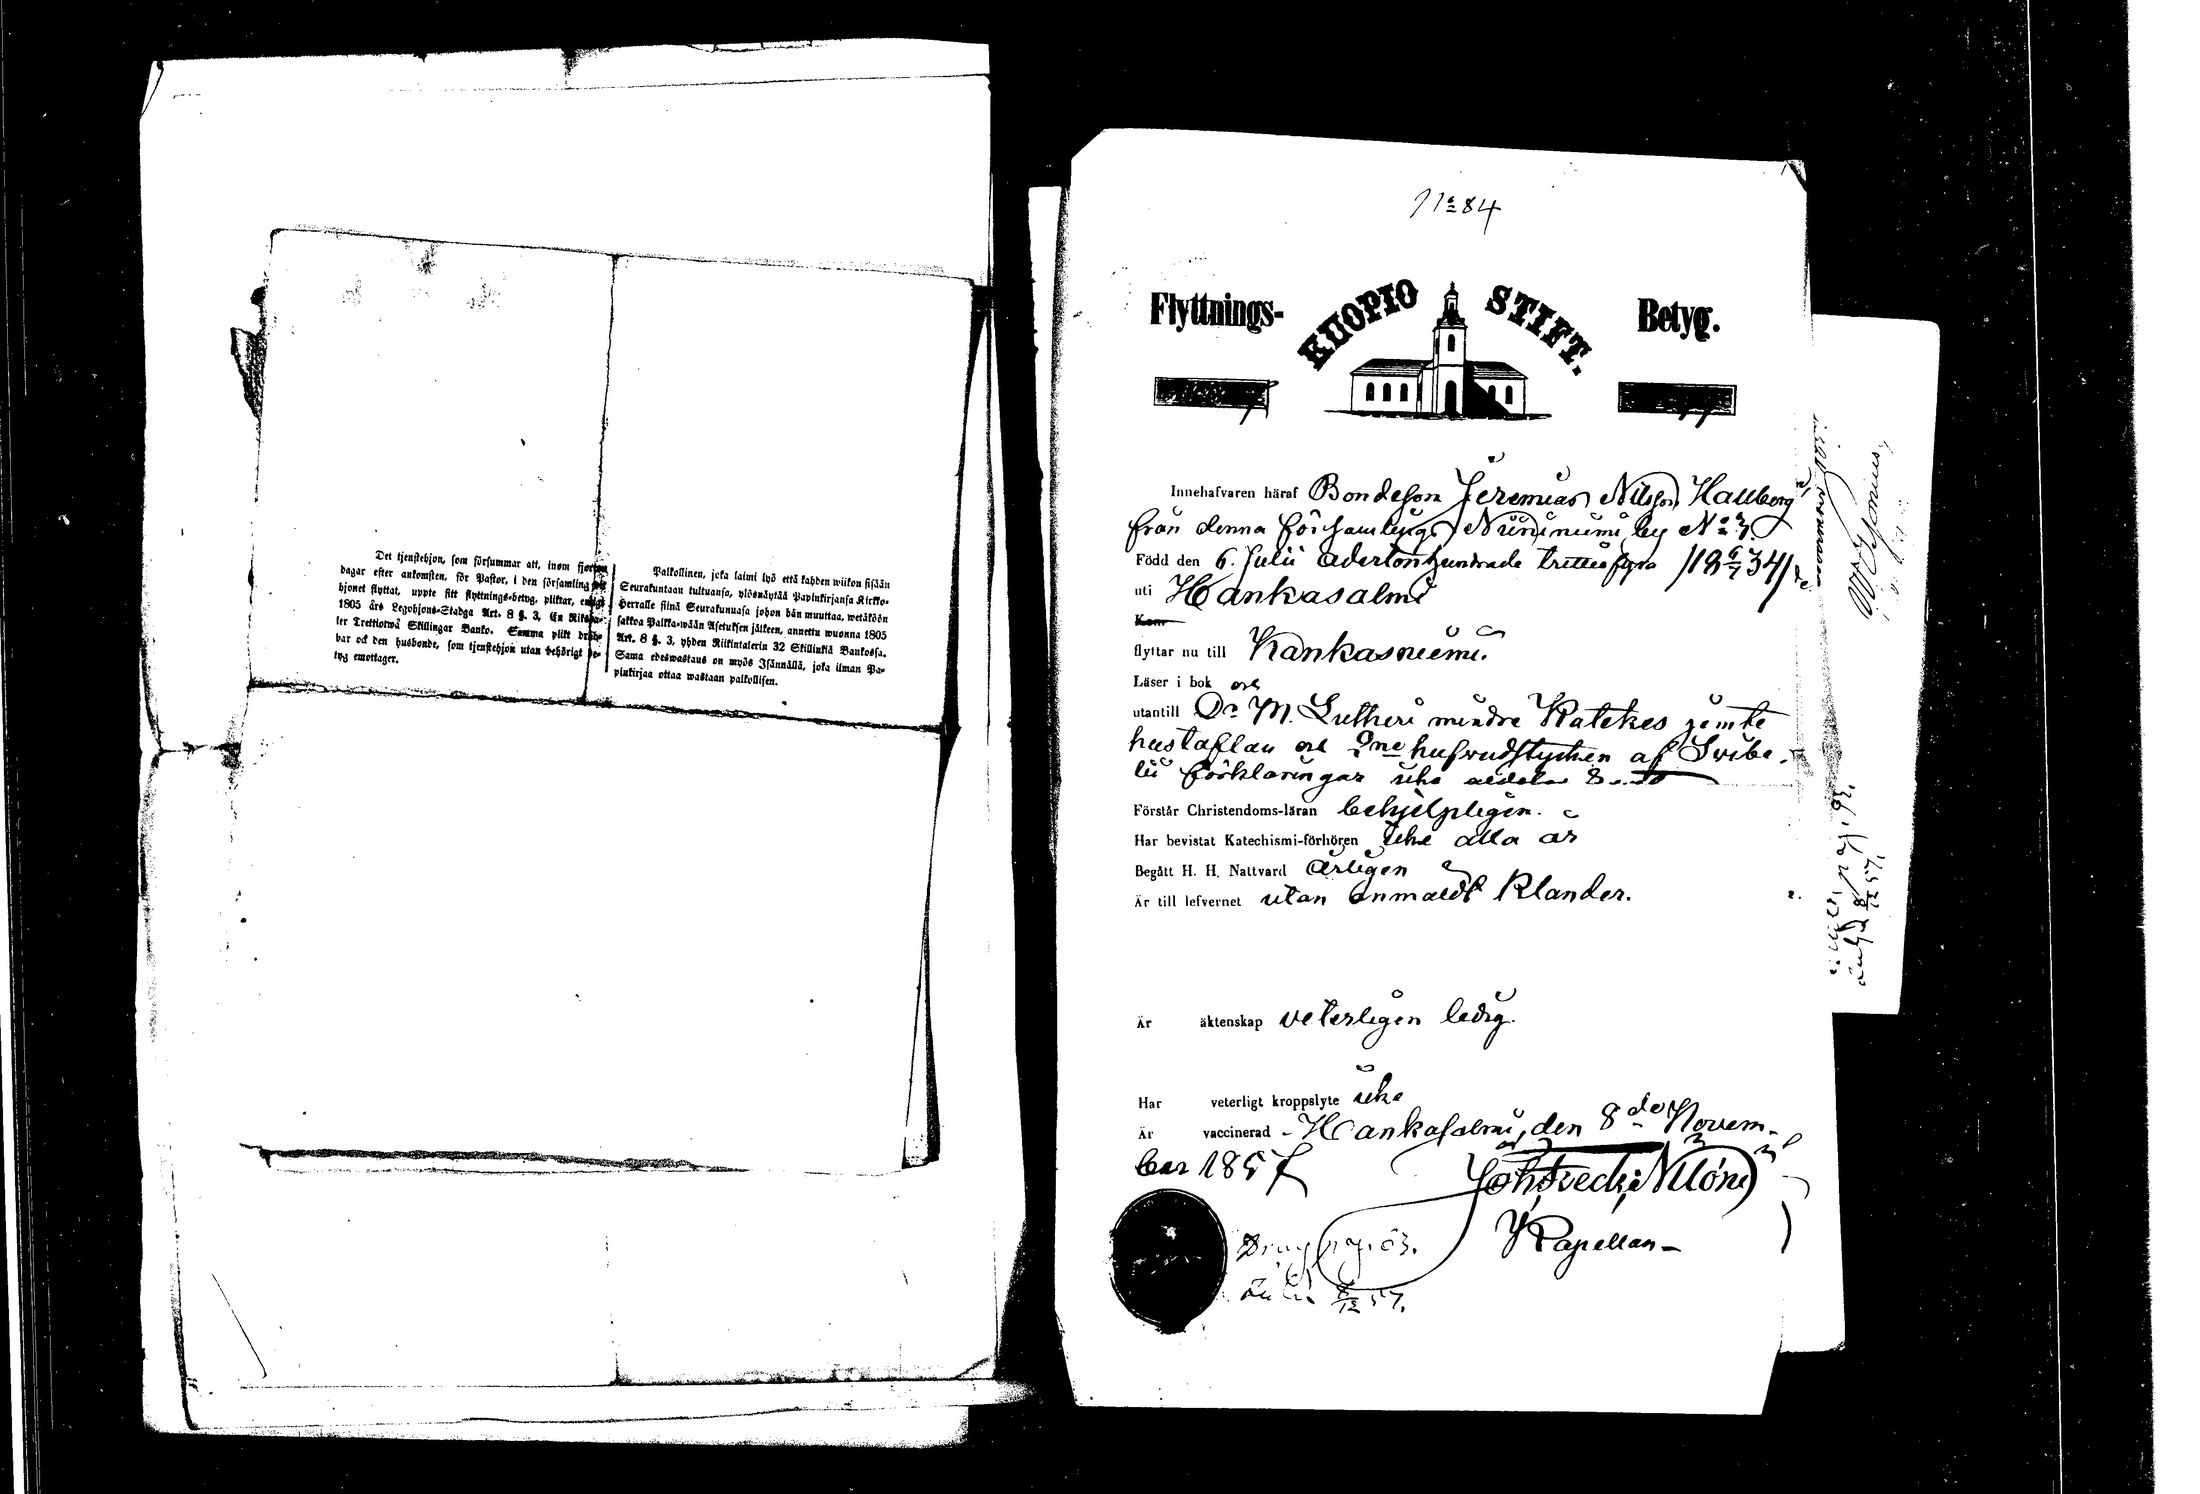 Det tjenstehjon, som försummar att, inom fjorton
dagar efter ankomsten, för Pastor, i den församling
hjonet flyttat, uppte sitt flyttnings-betyg, pliktar, enligt
1805 års Legohjons-Stadga Art. 8 §. 3, En Riksda-
ler Trettiotwå Skillingar Banko. Samma plikt
bar ock den husbonde, som tjenstehjon utan behörigt be-
tyg emottager.
Palkollinen, joka laimi lyö että kahden wiikon sisään
Seurakuntaan tultuansa, ylösnäyttää Papinkirjansa Kirkko-
Herralle siinä Seurakunnasa johon hän muuttaa, wetäköön
sakkoa Palkka-wään Asetuksen jälkeen, annettu wuonna 1805
Art. 8 §. 3, yhden Riikintalerin 32 Skillinkiä Bankossa.
Sama edeswastaus on myös Isännällä, joka ilman Pa-
pinkirjaa ottaa wastaan palkollisen.
No 84
Flyttnings- KUOPIO STIFT. Betyg.
Innehafvaren häraf Bondeson Jeremias Nilsson Hallberg
från denna församlings Niininiemi by No 3.
Född den 6. Julii adertonhundrade trettiofyra /18 6/7 34/
uti Hankasalmi
flyttar nu till Kankasniemi.
Läser i bok och
utantill Dr M. Lutheri mindre Katekes jemte
hustaflan och 2ne hufvudstycken af Svebe-
lii förklaringar icke
Förstår Christendoms-läran behjelpligen.
Har bevistat Katechismi-förhören icke alla år
Begått H. H. Nattvard årligen
Är till lefvernet utan anmäldt klander.
Är äktenskap veterligen ledig.
Har veterligt kroppslyte icke
Är vaccinerad - Hankasalmi, den 8de Novem-
ber 1857
Kapellan
8/12 57.